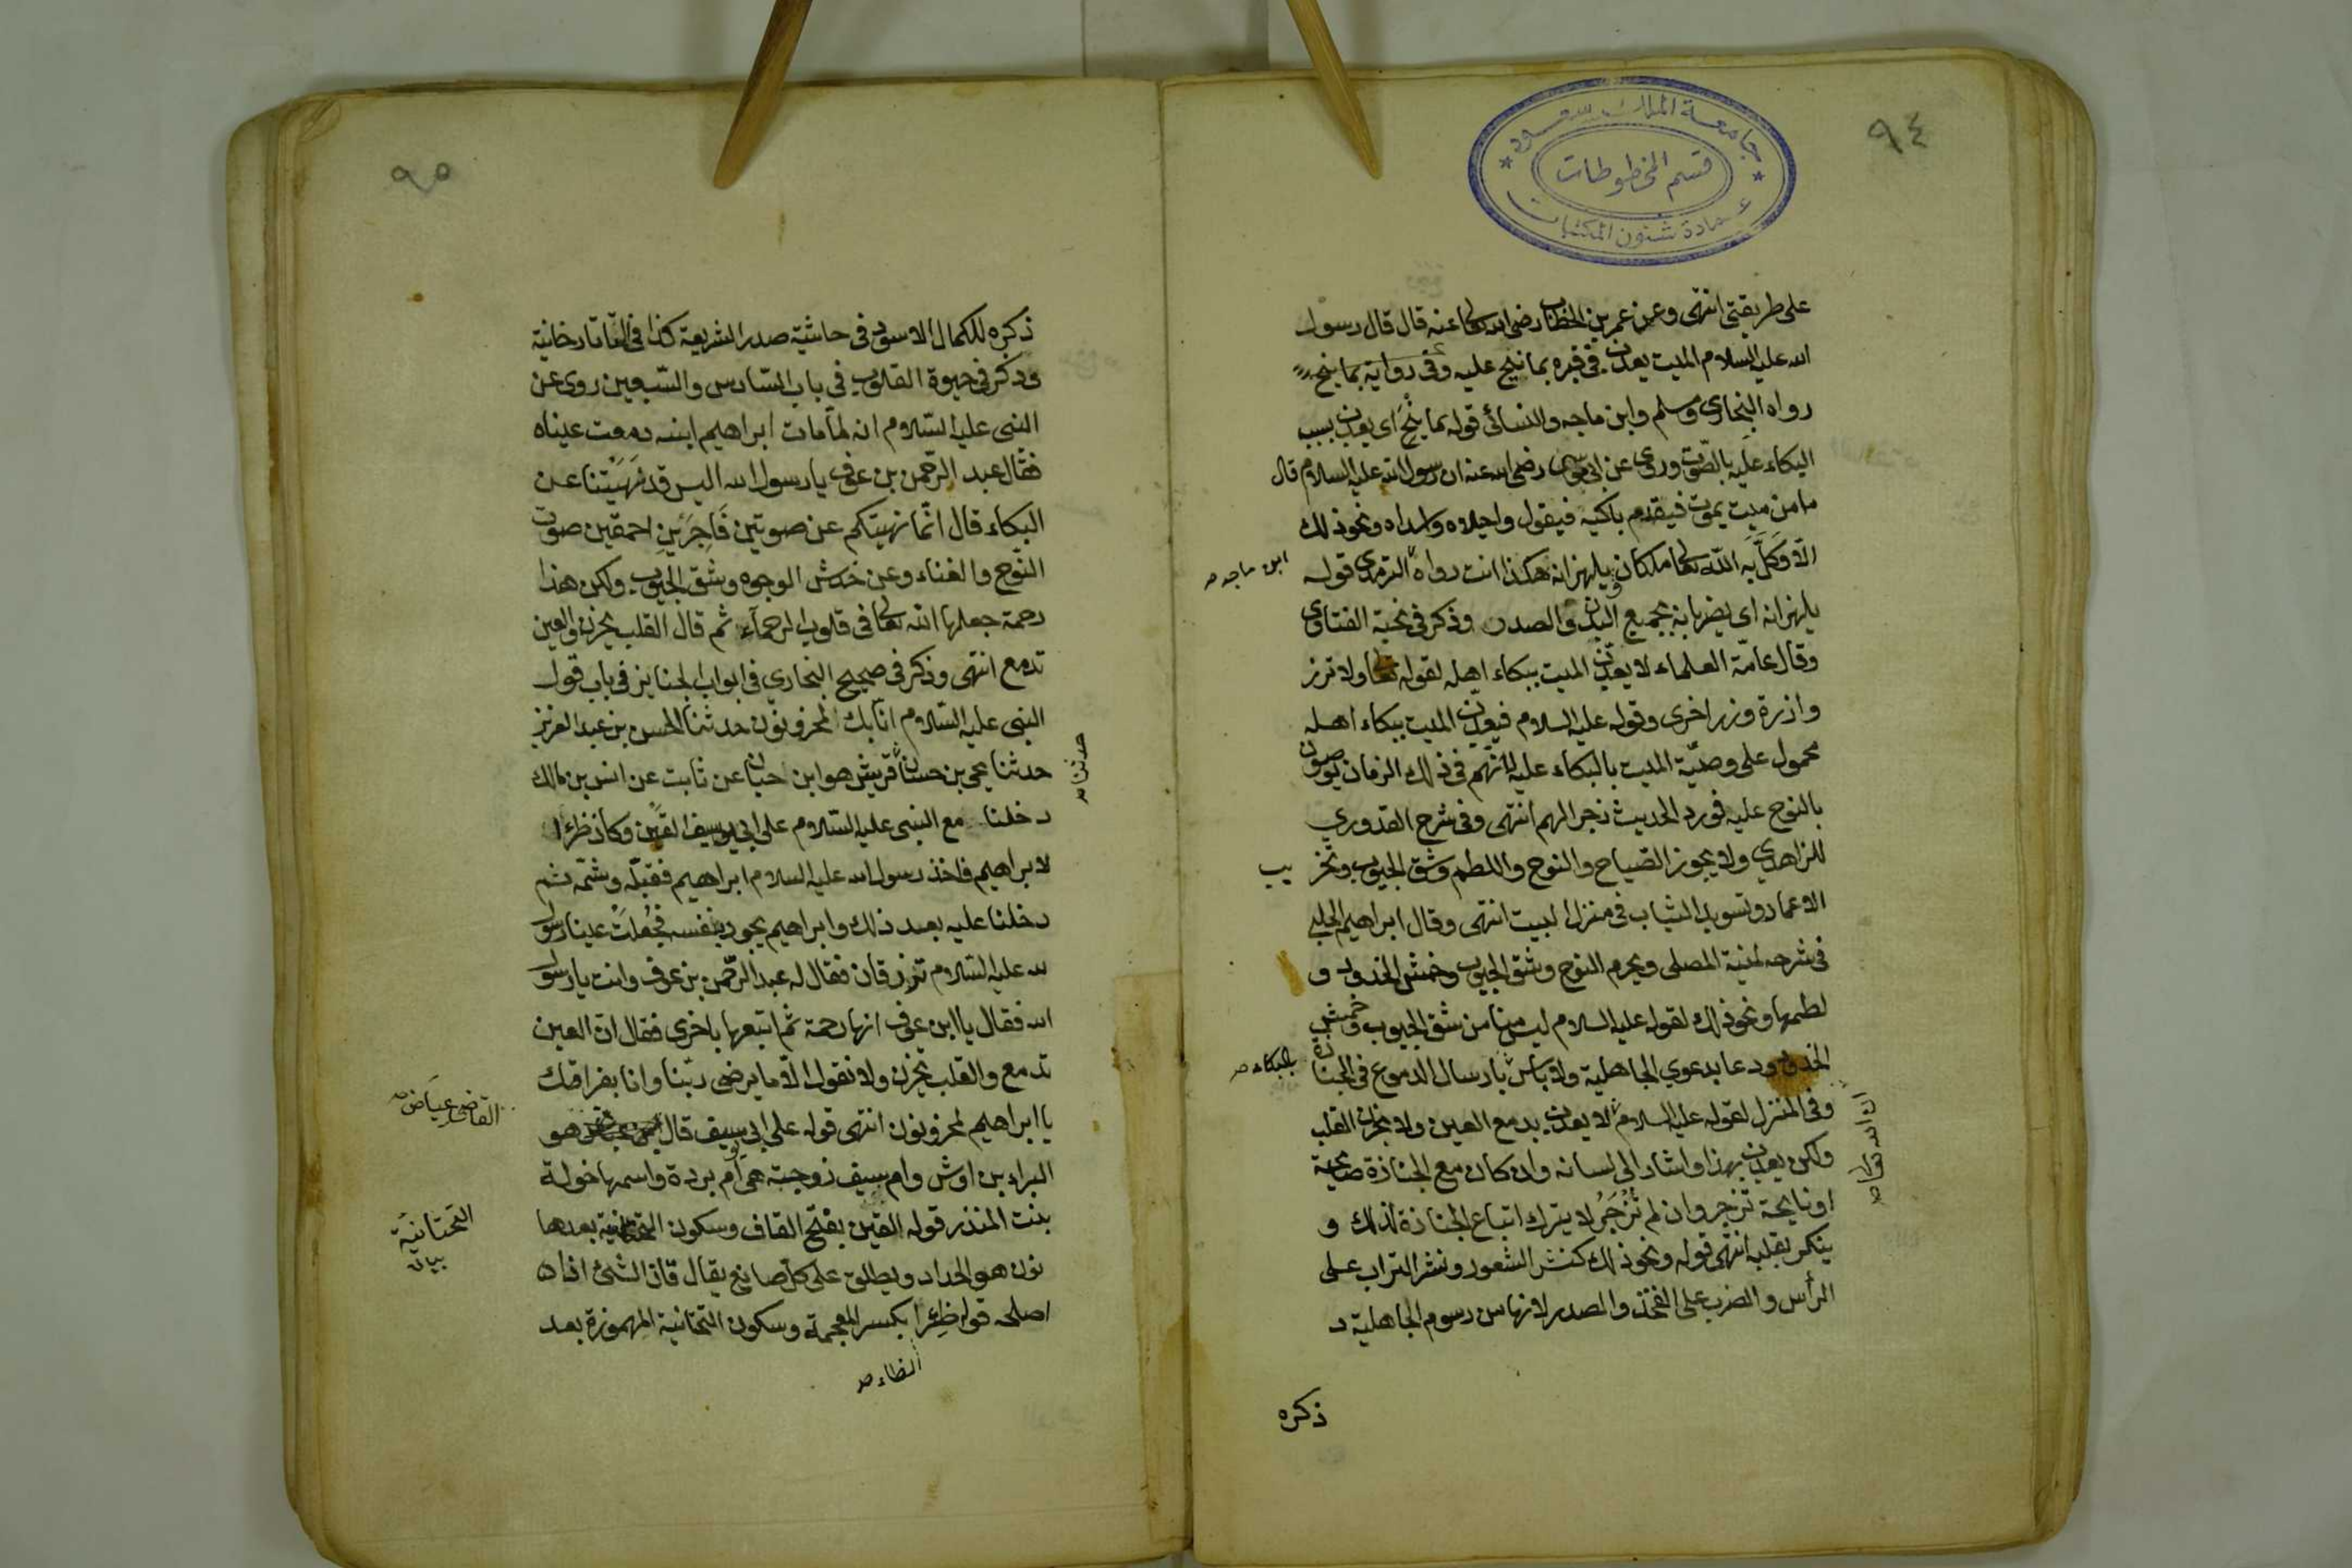 ٩٤
جامعة الملك سعود
قسم المخطوطات
عمادة شئون المكتبات
على طريقتى انتهى وعن عمر بن الخطاب رضى الله تعالى عنه قال قال رسول
الله عليه السلام الميت يعذب فى قبره بما نيح عليه وفى رواية بما ينح
رواه البخارى ومسلم وابن ماجه والنسائى قوله بما ينح اى يعذب بسبب
البكاء عليه بالصوت وروى عن ابى موسى رضى الله عنه ان رسول الله عليه السلام قال
ما من ميت يموت فيقدم باكيه فيقول واجبلاه واسداه ونحو ذلك
الا وكل به الله تعالى ملكان يلهزانه هكذا انت رواه الترمذى قوله
ابن ماجه صح
يلهزانه اى يضربانه بجميع اليد فى الصدر وذكر فى نخبة الفتاوى
وقال عامة العلماء لا يعذب الميت ببكاء اهله لقوله تعالى ولا تزر
وازرة وزر اخرى وقوله عليه السلام فيعذب الميت ببكاء اهله
محمول على وصية الميت بالبكاء عليه لانهم فى ذلك الزمان يوصون
بالنوح عليه فورد الحديث زجرا لهم انتهى وفى شرح القدورى
للزاهدى ولا يجوز الصياح والنوح واللطم وشق الجيوب وتخريب
الاعمار وتسويد الثياب فى منزل البيت انتهى وقال ابراهيم الحلبى
فى شرحه لمنية المصلى ويحرم النوح وشق الجيوب وخمش الخدود و
لطمها ونحو ذلك لقوله عليه السلام ليس منا من شق الجيوب وخمش
الخدود ودعا بدعوى الجاهلية ولا بأس بارسال الدموع فى الجنازة
بالبكاء صح
وفى المنزل لقوله عليه السلام لا يعذب بدمع العين ولا بحزن القلب
ان الله تعالى صح
ولكن يعذب بهذا واشار الى لسانه وان كان مع الجنازة صايحة
او نايحة تزجر وان لم تزجر لا يترك اتباع الجنازة لذلك و
ينكر بقلبه انتهى قوله ونحو ذلك كنشر الشعور ونثر التراب على
الرأس والضرب على الفخذ والصدر لانها من رسوم الجاهلية د
ذكره
٩٥
ذكره للكمال الاسود فى حاشية صدر الشريعة كذا فى التاتارخانية
وذكر فى حيوة القلوب فى باب السادس والسبعين روى عن
النبى عليه السلام انه لما مات ابراهيم ابنه دمعت عيناه
فقال عبد الرحمن بن عوف يا رسول الله اليس قد نهيتنا عن
البكاء قال انما نهيتكم عن صوتين فاجرين احمقين صوت
النوح والغناء وعن خدش الوجوه وشق الجيوب ولكن هذا
رحمة جعلها الله تعالى فى قلوب الرحمآء ثم قال القلب يحزن والعين
تدمع انتهى وذكر فى صحيح البخارى فى ابواب الجنايز فى باب قول
النبى عليه السلام انا بك لمحزونون حدثنا الحسن بن عبد العزيز
حدثنا يحيى بن حسان قريش هو ابن حيان عن ثابت عن انس بن مالك
حدثنا صح
دخلنا مع النبى عليه السلام على ابى يوسيف القين وكان ظئرا
لابراهيم فاخذ رسول الله عليه السلام ابراهيم فقبله وشمه ثم
دخلنا عليه بعد ذلك وابراهيم يجود بنفسه فجعلت عينا رسول
الله عليه السلام تزرفان فقال له عبد الرحمن بن عوف وانت يا رسول
الله فقال يا ابن عوف انها رحمة ثم اتبعها باخرى فقال ان العين
تدمع والقلب يحزن ولا نقول الا ما يرضى ربنا وانا بفراقك
يا ابراهيم لمحزونون انتهى قوله على ابى سيف قال هو
القاضى عياض صح
البراء بن اوش وام سيف زوجته هى ام بردة واسمها خولة
بنت المنذر قوله القين بفتح القاف وسكون التحتانية بعدها
التحتانية
بيان
نون هو الحداد ويطلق على كل صانع يقال قان الشئ اذا
اصلحه قوله ظئرا بكسر المعجمة وسكون التحتانية المهموزة بعد
الظاء صح